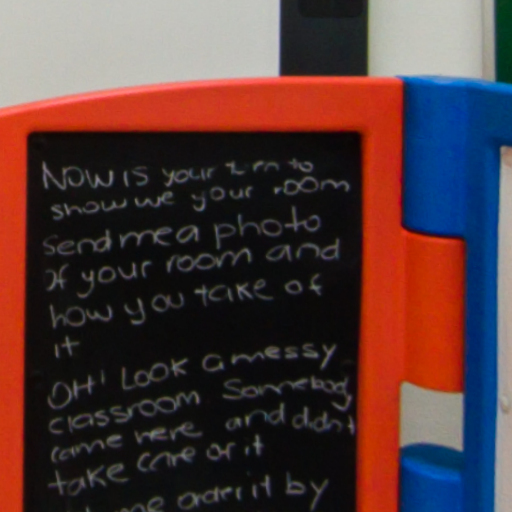 NOW IS your turn to
show we your room
Send me a photo
of your room and
how you take of
it
OH! LOOK a messy
classroom Somebody
came here and didn't
take care of it
me order it by